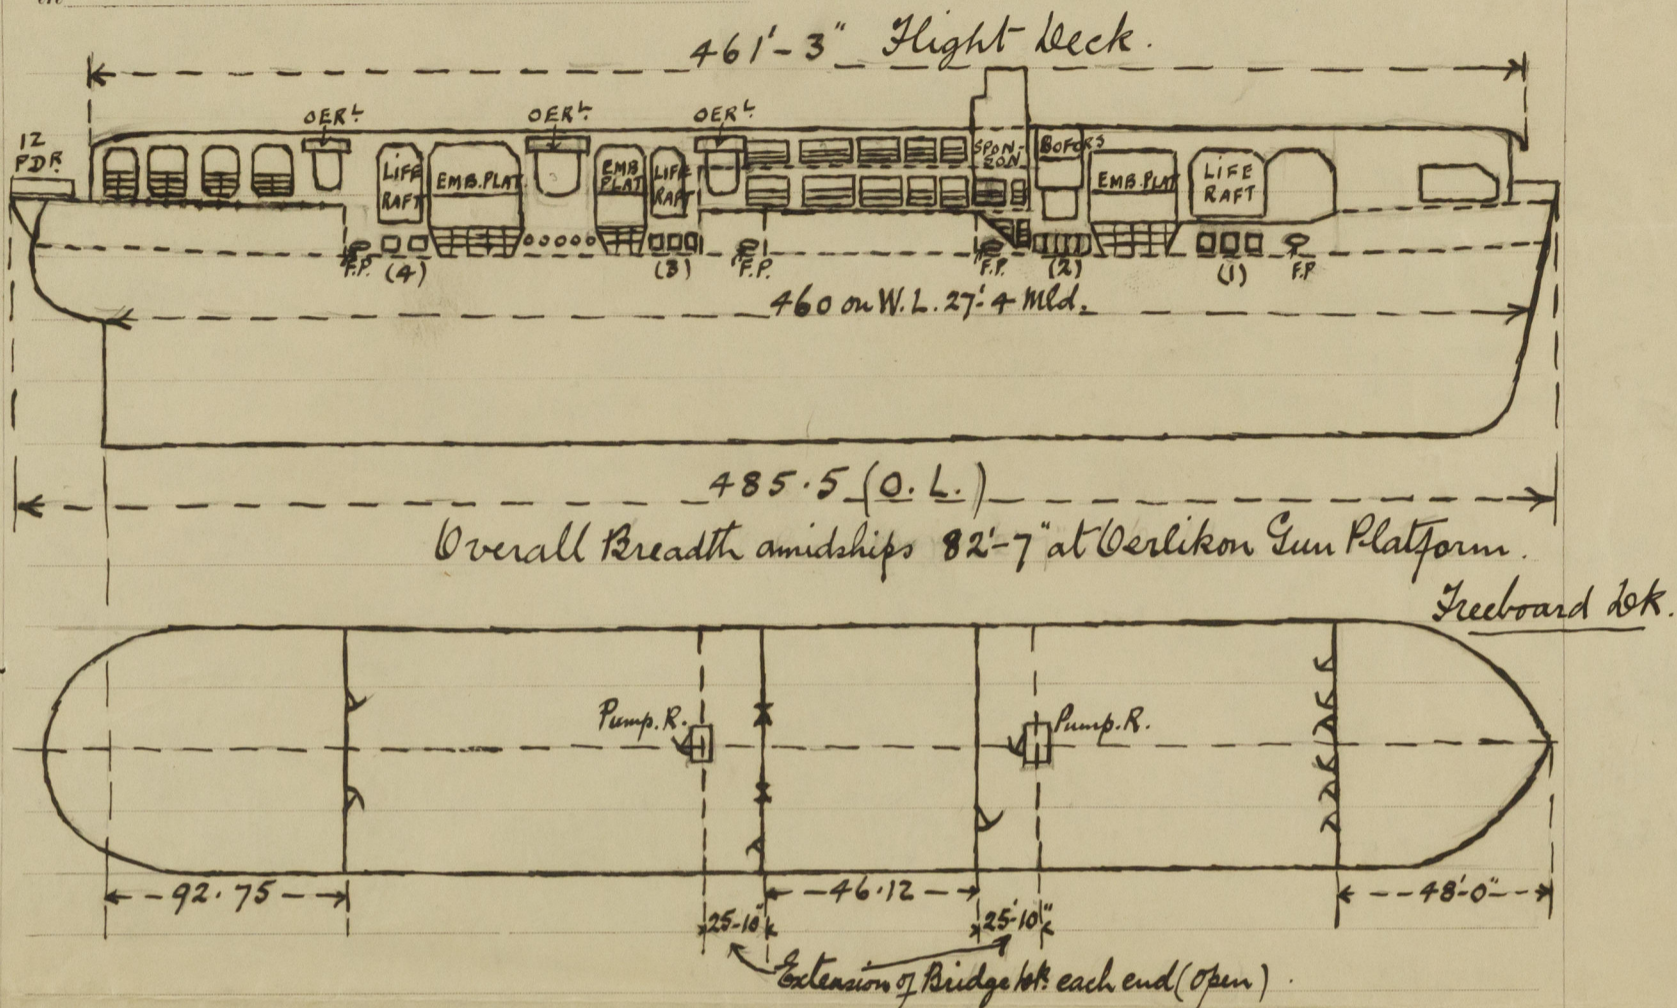 461'-3" Flight Deck.
OER^L
OER^L
OER^L
12
PDR
LIFE
RAFT
EMB.PLAT
EMB
PLAT
LIFE
RAFT
SPON-
SON
BOFORS
EMB.PLAT
LIFE
RAFT
F.P.
(4)
(3)
F.P.
F.P.
(2)
(1)
F.P
460 on W.L. 27'.4 Mld.
485.5 (O. L.)
Overall Breadth amidships 82'-7" at Oerlikon Gun Platform.
Freeboard Dk.
Pump.R.
Pump.R.
92.75
46.12
48'-0"
25-10"
25'-10"
Extension of Bridge Dk. each end (open).